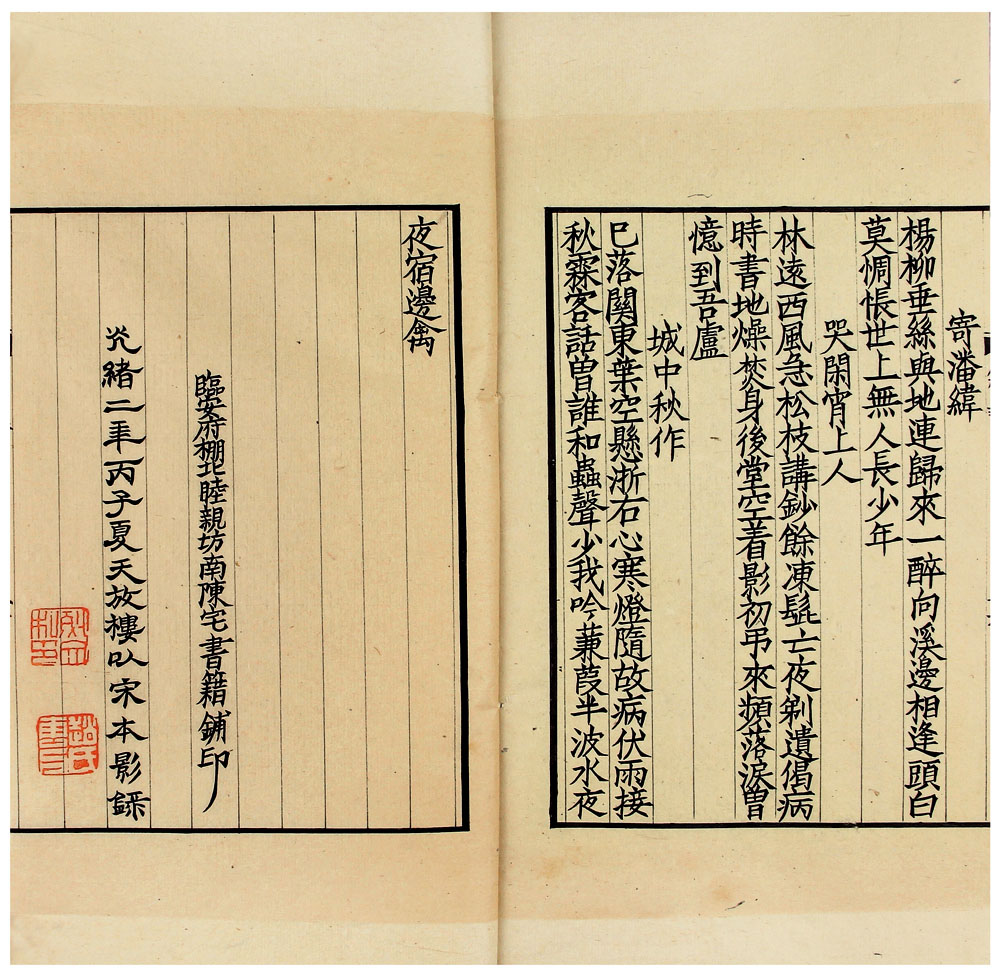 寄潘緯
楊柳垂絲與地連歸來一醉向溪邊相逢頭白
莫惆悵世上無人長少年
哭閑宵上人
林遠西風急松枝講鈔餘凍髭亡夜剃遺偈病
時書地燥焚身後堂空著影初弔來頻落淚曽
憶到吾廬
城中秋作
已落關東葉空懸浙右心寒燈隨故病伏雨接
秋霖客話曽誰和蟲聲少我吟蒹葭半波水夜
夜宿邊禽
臨安府棚北睦親坊南陳宅書籍鋪印
光緒二年丙子夏天放樓以宋本影鈔
趙氏